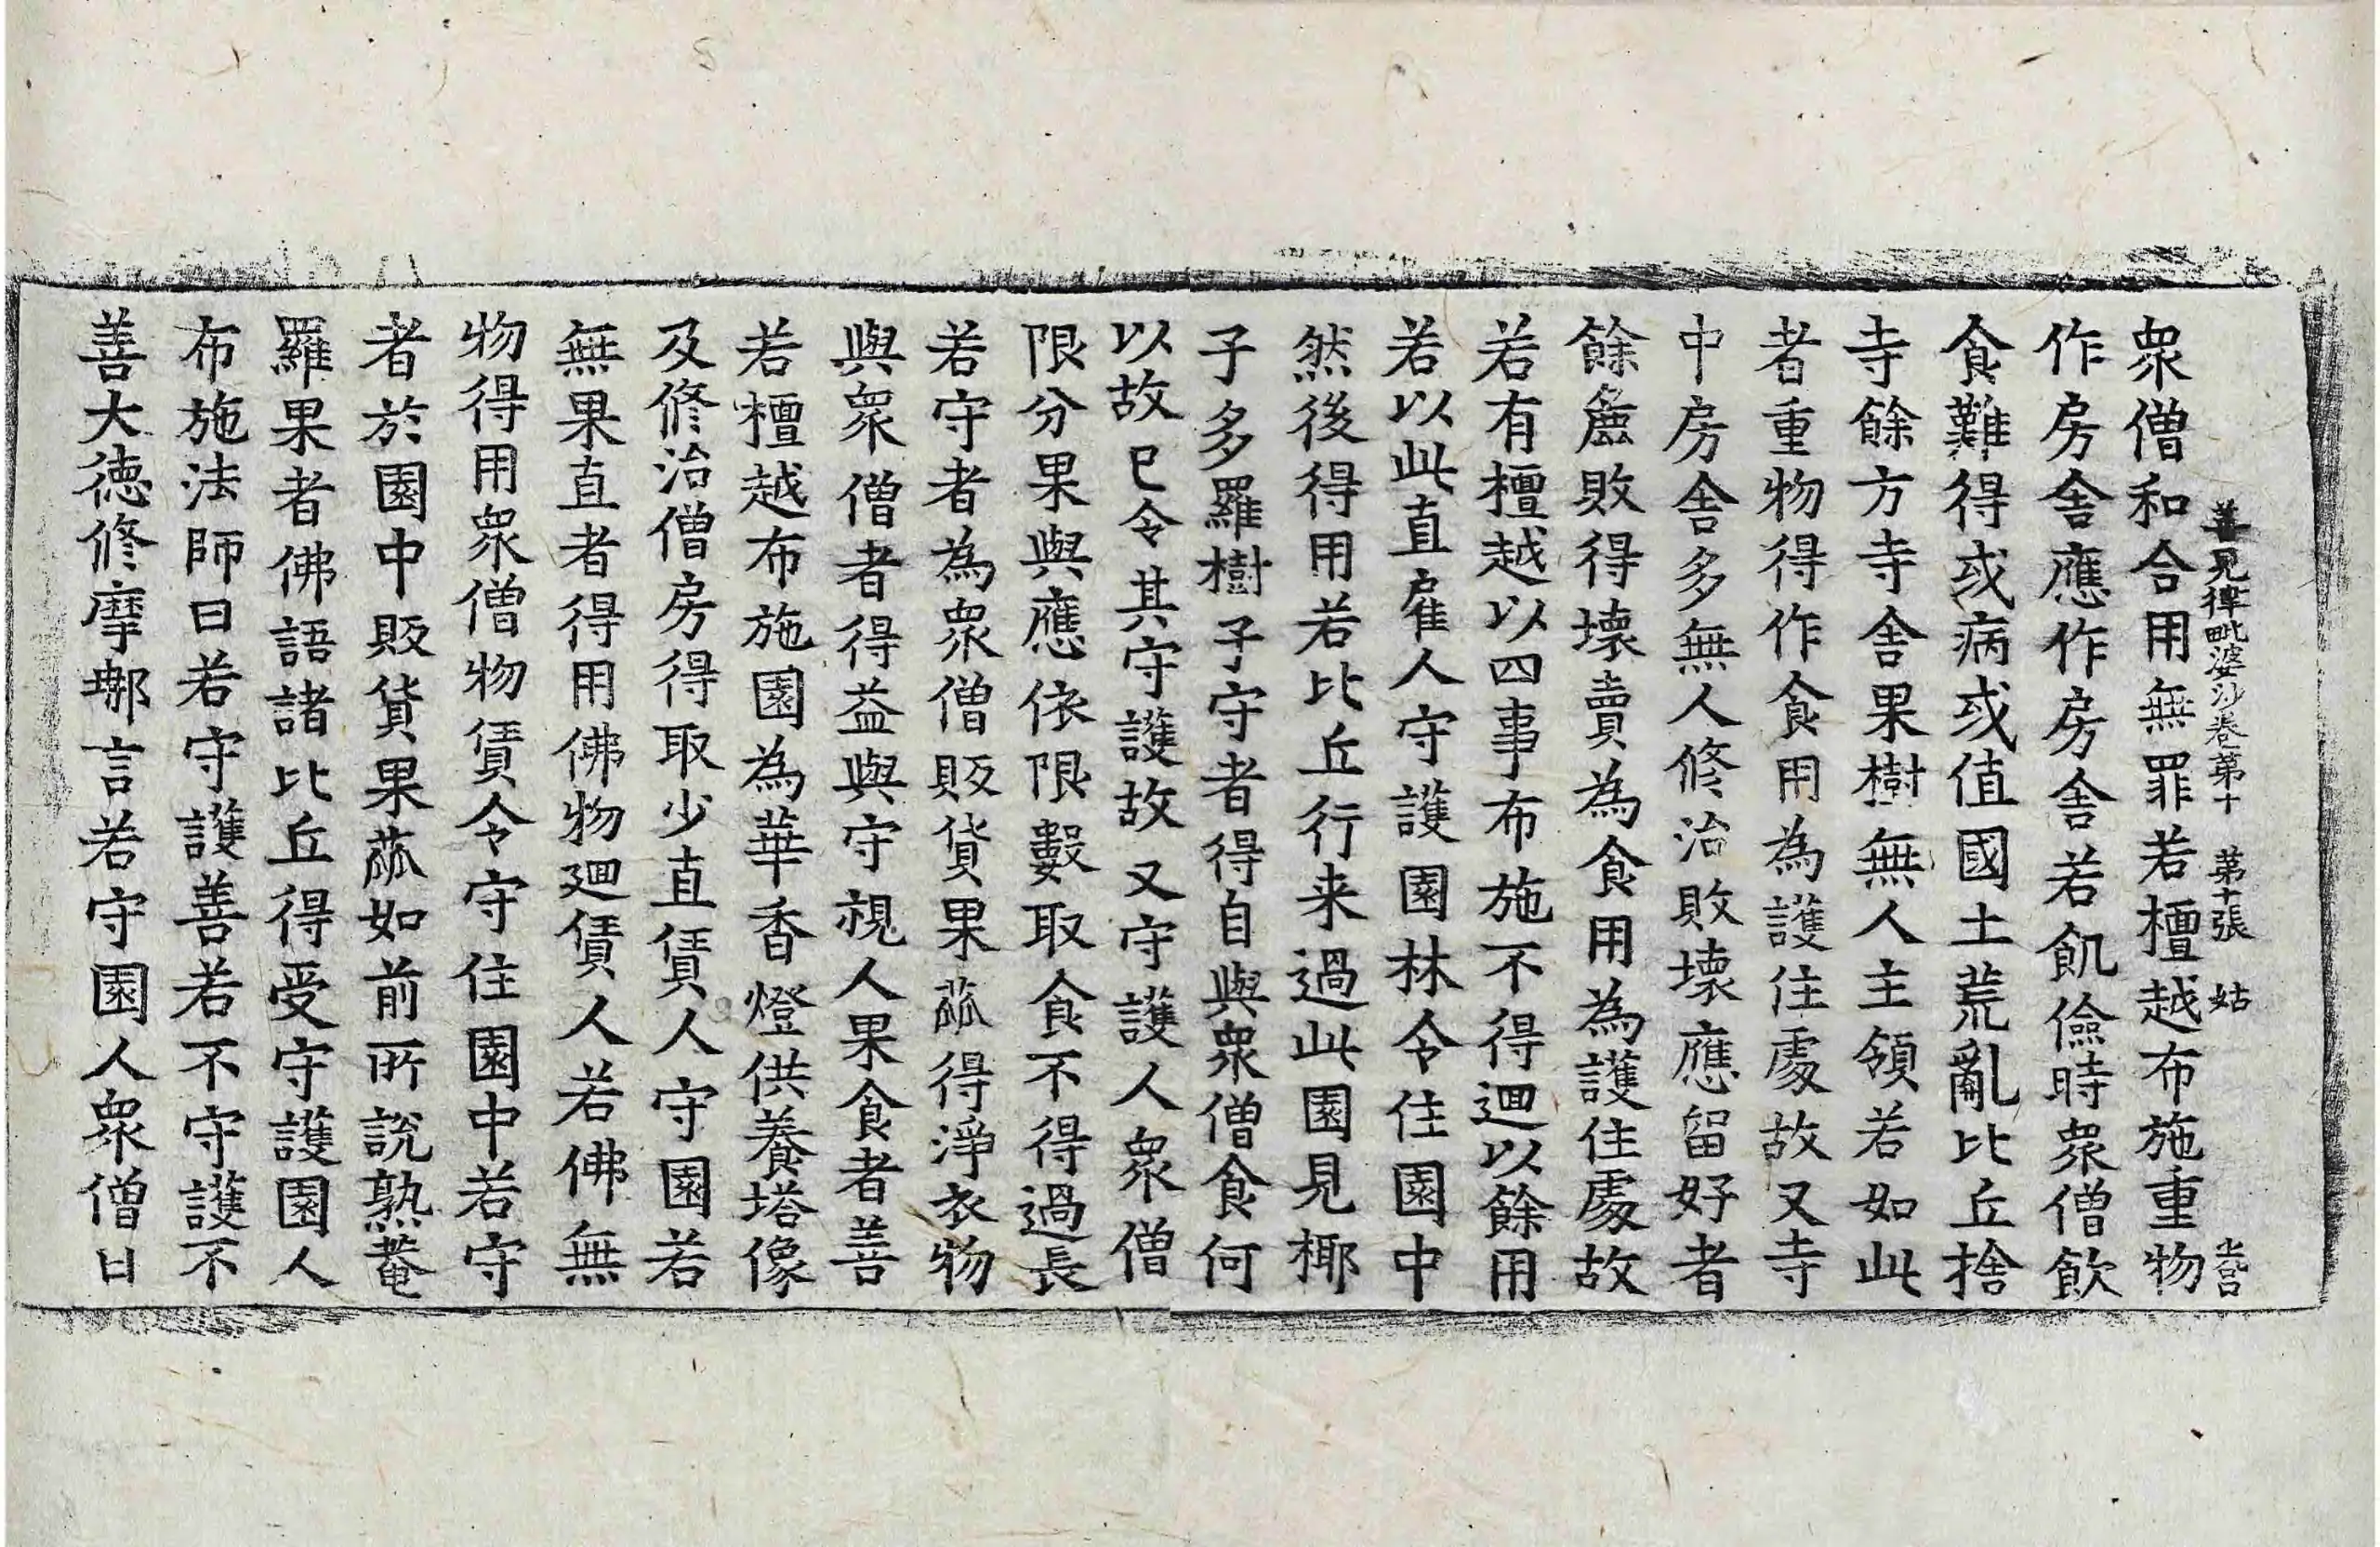 善見律毗婆沙卷第十 第十張 姑
眾僧和合用無罪若檀越布施重物
作房舍應作房舍若飢儉時眾僧飲
食難得或病或值國土荒亂比丘捨
寺餘方寺舍果樹無人主領若如此
者重物得作食用為護住處故又寺
中房舍多無人修治敗壞應留好者
餘麁敗得壞賣為食用為護住處故
若有檀越以四事布施不得迴以餘用
若以此直雇人守護園林令住園中
然後得用若比丘行来過此園見椰
子多羅樹子守者得自與眾僧食何
以故已令其守護故又守護人眾僧
限分果與應依限數取食不得過長
若守者為眾僧販貨果蓏得淨衣物
與眾僧者得益與守視人果食者善
若檀越布施園為華香燈供養塔像
及修治僧房得取少直賃人守園若
無果直者得用佛物迴賃人若佛無
物得用眾僧物賃令守住園中若守
者於園中販貨果蓏如前所說熟菴
羅果者佛語諸比丘得受守護園人
布施法師曰若守護善若不守護不
善大德修摩那言若守園人眾僧日